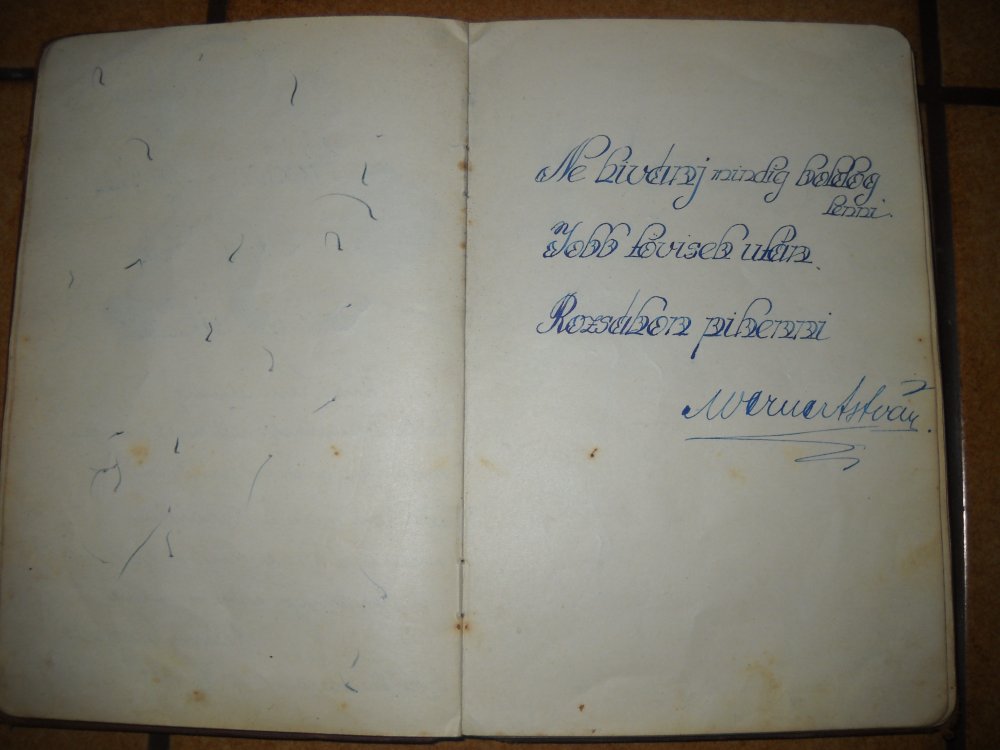 Ne kivánj mindig boldog
lenni.
Jobb tövisek után.
Rozsákon pihenni
Werner István.